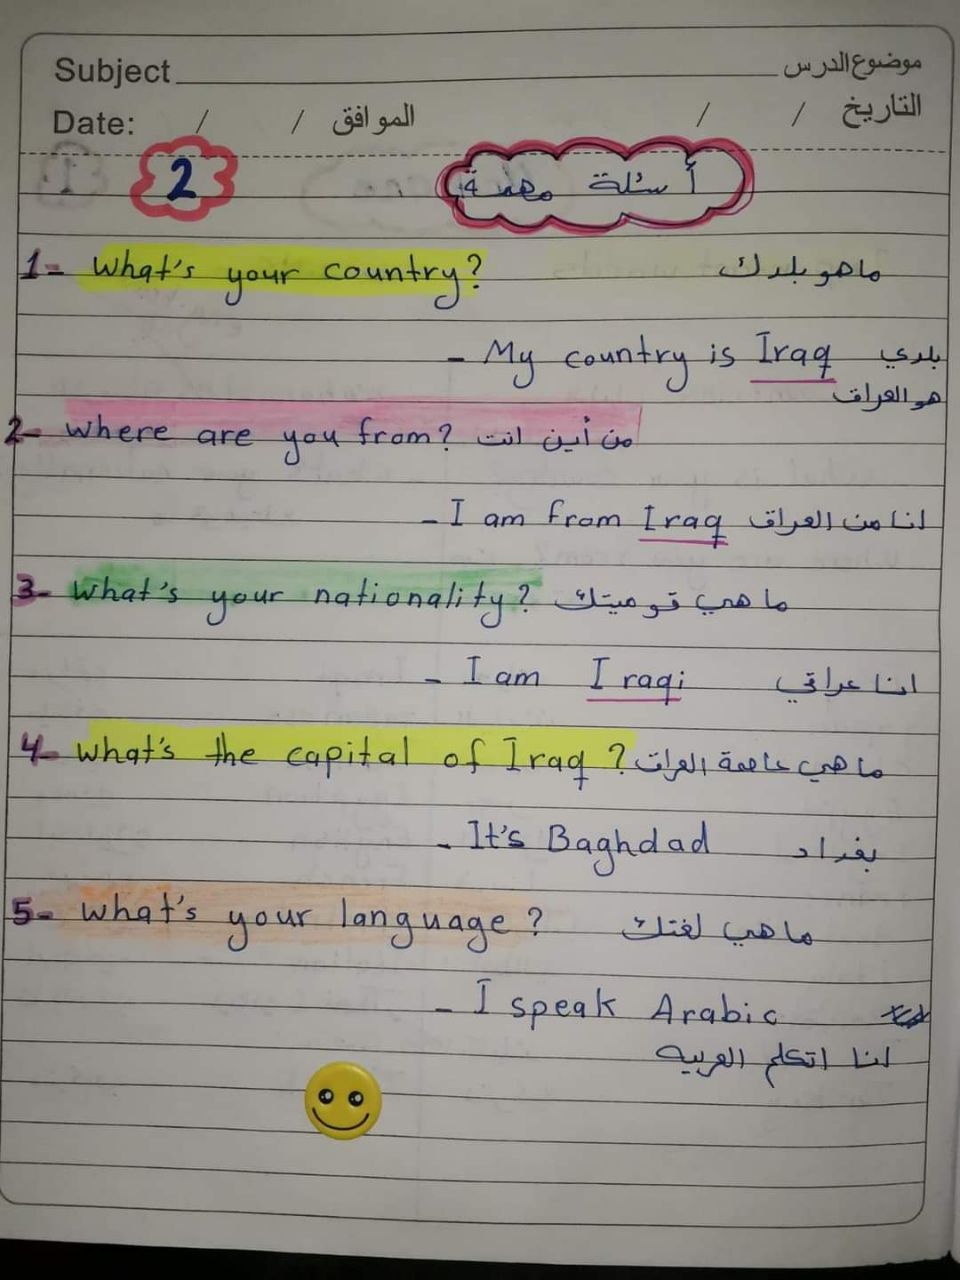 Subject موضوع الدرس
Date: / / الموافق / / التاريخ
2 أسئلة مهمة
1- What's your country? ماهو بلدك
- My country is Iraq بلدي
هو العراق
2- where are you from? من أين انت
- I am from Iraq انا من العراق
3- What's your nationality? ما هي قوميتك
- I am Iraqi انا عراقي
4- what's the capital of Iraq? ما هي عاصمة العراق
- It's Baghdad بغداد
5- what's your language? ما هي لغتك
- I speak Arabic
انا اتكلم العربيه